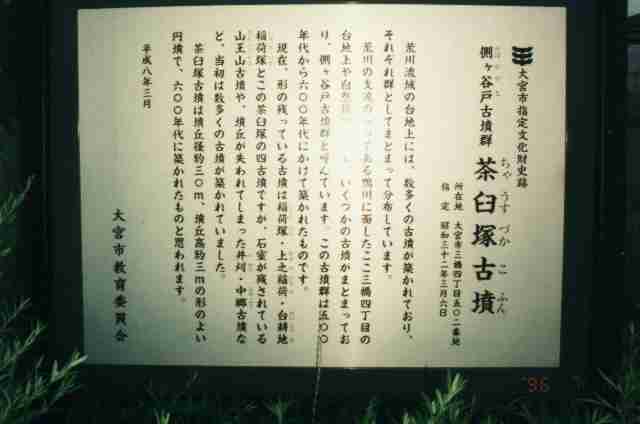 大宮市指定文化財史跡
側ヶ谷戸古墳群
茶臼塚古墳
ちゃうすづかこふん
所在地 大宮市三橋四丁目五〇二番地
指定 昭和三十二年三月六日
荒川流域の台地上には、数多くの古墳が築かれており、
それぞれ群としてまとまって分布しています。
荒川の支流の一つである鴨川に面したここ三橋四丁目の
台地上や自然 いくつかの古墳がまとまってお
り、側ヶ谷戸古墳群と呼んでいます。この古墳群は五〇〇
年代から六〇〇年代にかけて築かれたものです。
現在、形の残っている古墳は稲荷塚・上之稲荷・台耕地
稲荷塚とこの茶臼塚の四古墳ですが、石室が残されている
山王山古墳や、墳丘が失われてしまった井刈・中郷古墳な
ど、当初は数多くの古墳が築かれていました。
茶臼塚古墳は墳丘径約三〇m、墳丘高約三mの形のよい
円墳で、六〇〇年代に築かれたものと思われます。
平成八年三月
大宮市教育委員会
'96